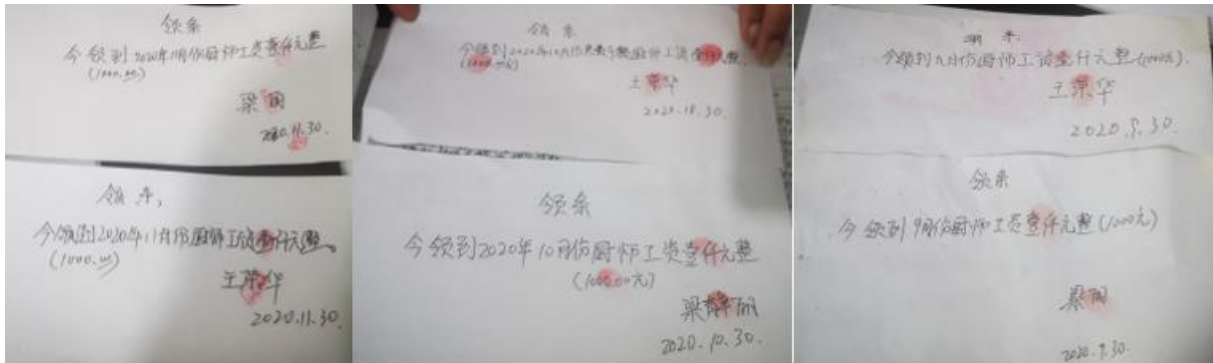 领条
今领到2020年11月份厨师工资壹仟元整
(1000.00)
梁丽
2020.11.30.
领条,
今领到2020年11月份厨师工资壹仟元整。
(1000.00)
王荣华
2020.11.30.
领条
今领到2020年10月份
厨师工资壹仟元整.
王荣华
2020.10.30.
领条
今领到2020年10月份厨师工资壹仟元整
(1000.00元)
梁丽
2020.10.30.
领条.
今领到九月份厨师工资壹仟元整(1000元).
王荣华
2020.9.30.
领条
今领到9月份厨师工资壹仟元整(1000元)
梁丽
2020.9.30.